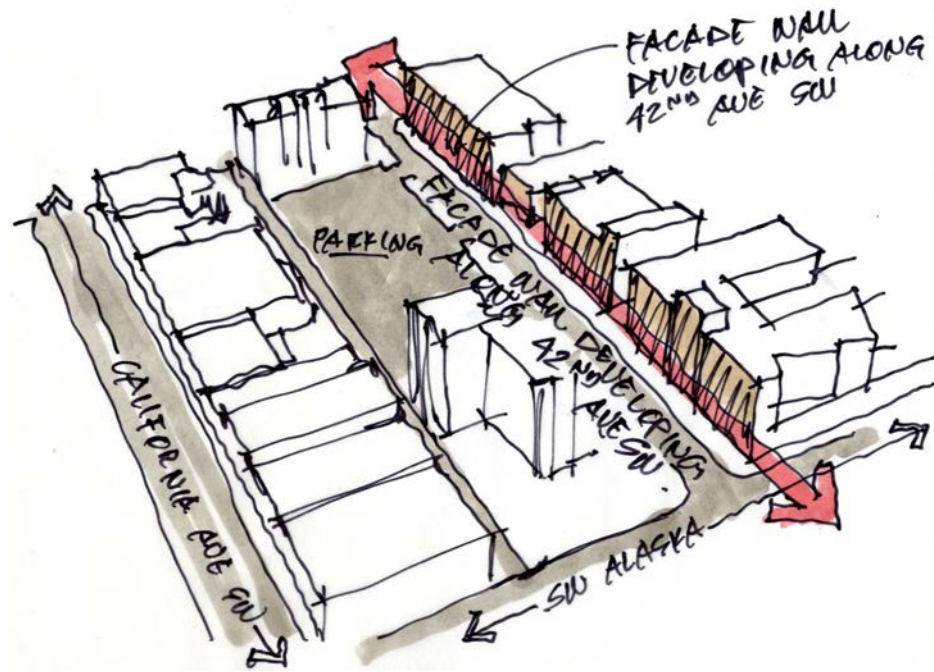 FACADE WALL
DEVELOPING ALONG
42ND AVE SW
PARKING
FACADE WALL DEVELOPING
ALONG 42ND AVE SW
CALIFORNIA AVE SW
SW ALASKA